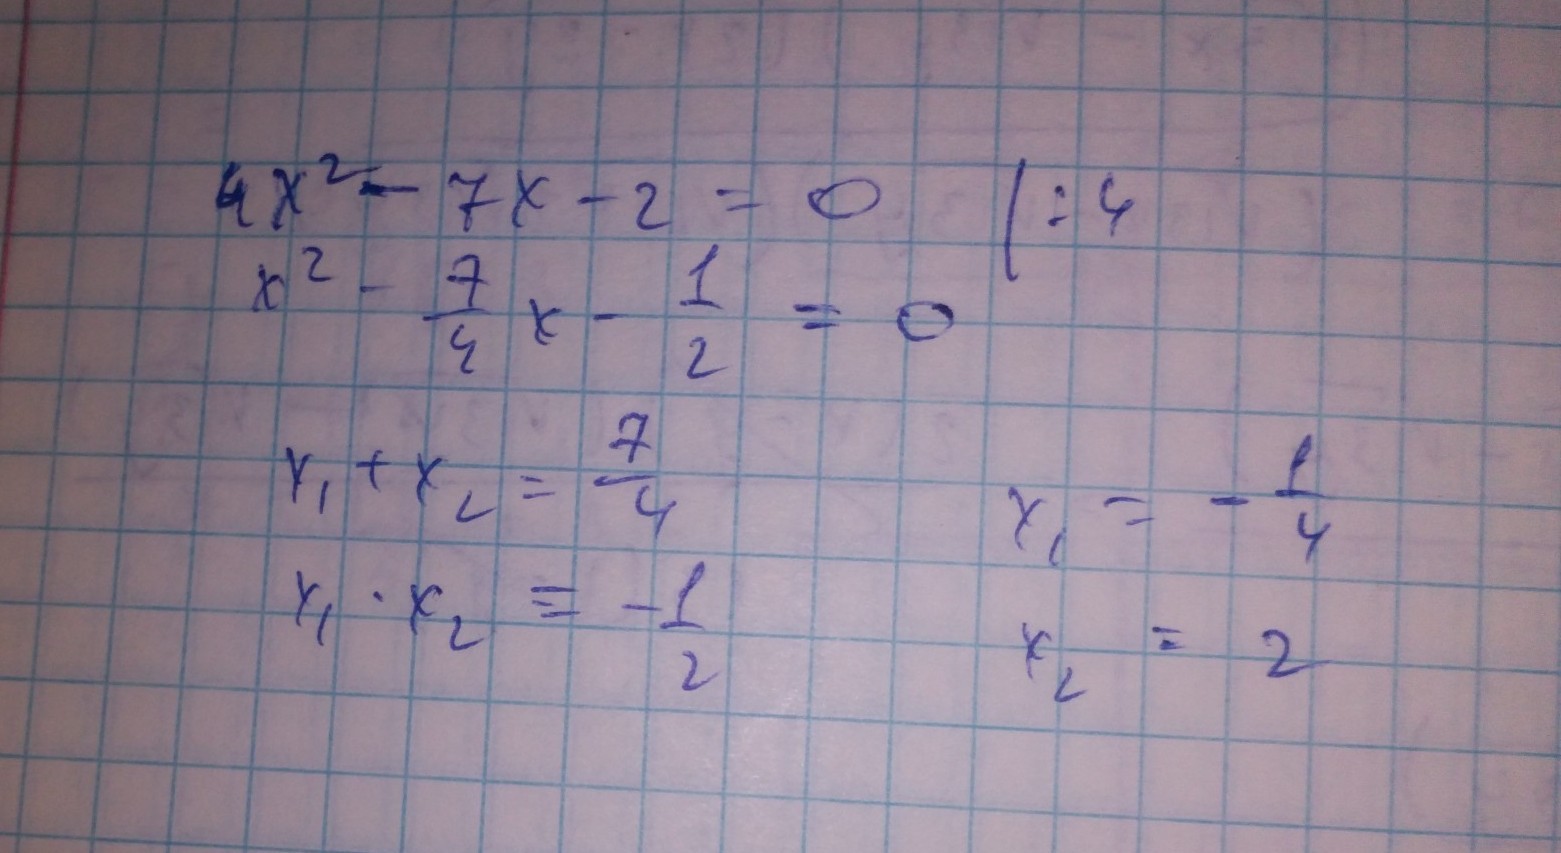 4x² - 7x - 2 = 0 | : 4
x² - 7/4 x - 1/2 = 0
x₁ + x₂ = 7/4
x₁ · x₂ = -1/2
x₁ = - 1/4
x₂ = 2